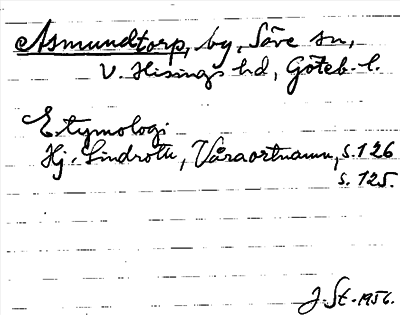 Asmundtorp, by, Säve sn,
V. Hisings hd, Göteb. l.
Etymologi
Hj. Lindroth, Våra ortnamn, s. 126
s. 125.
J. St. 1956.